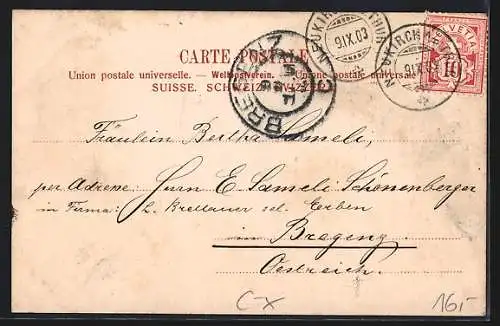 CARTE POSTALE
Union postale universelle. — Weltpostverein. — Unione postale universale
SUISSE. SCHWEIZ. SVIZZERA.
NEUKIRCH
9.IX.03
NEUKIRCH
9.IX.03
HELVETIA
10
BRE
Fräulein Bertha Sameli,
per Adresse: Herrn E. Sameli-Schönenberger
in Firma: L. Brettauer sel. Erben
Bregenz
Oestreich.
CX
16,-